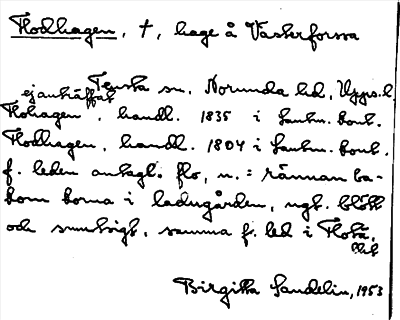 Flodhagen, †, hage å Västerforsa
Tensta sn, Norunda hd, Upps. l.
ej anträffat
Flohagen, handl. 1835 i Lantm. kont.
Flodhagen, handl. 1804 i Lantm. kont.
f. leden antagl. flo, n. = rännan ba-
kom korna i ladugården, ngt. blött
och smutsigt, samma f. led i Flotä,
Birgitta Sandelin, 1953